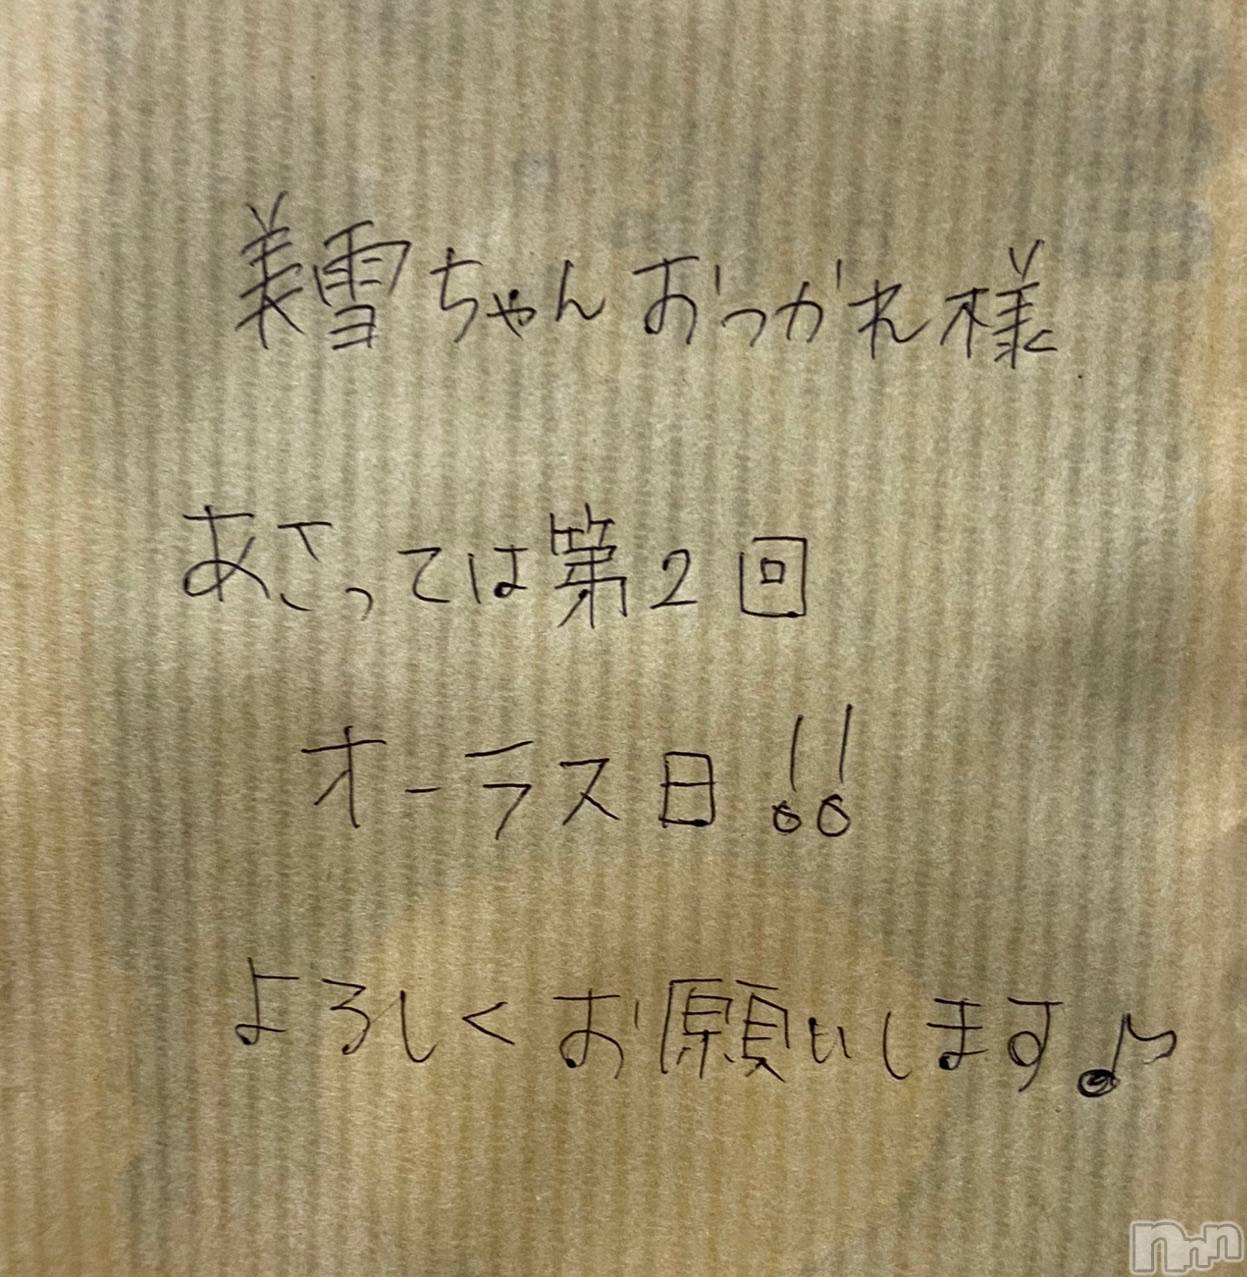 美雪ちゃんおつかれ様
あさっては第2回
オーラス日!!
よろしくお願いします♪
nnn